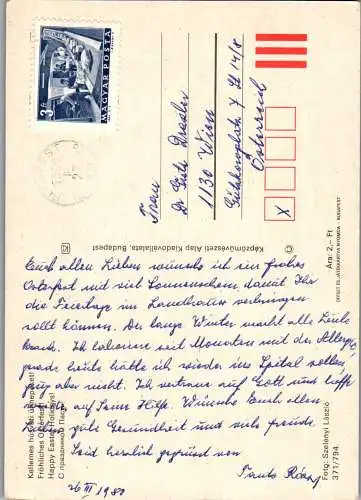 3 Ft
MAGYAR POSTA
Frau
Dr Gute Drexler
1130 Wien
7 14/8
Österreich
X
Képzőművészeti Alap Kiadóvállalata, Budapest
Ára: 2,- Ft
OFFSET ÉS JÁTÉKKÁRTYA NYOMDA - BUDAPEST
Kellemes húsvéti ünnepeket!
Fröhliches Osterfest!
Happy Easter Holidays!
С праздником Пасхи!
Euch allen Lieben wünsche ich ein frohes
Osterfest mit viel Sonnenschein, damit Ihr
die Feiertage im Landhause verbringen
sollt können. Der lange Winter macht alle Leute
krach. Ich laboriere seit Monaten mit der Allergie,
grade heute hätte ich wieder ins Spital sollen,
ging aber nicht. Ich vertraue auf Gott und hoffe
auf Seine Hilfe. Wünsche Euch allen
gute Gesundheit und viel Freude.
Seid herzlich gegrüsst von
Tante
26 III 1980
Fotó: Szelényi László
371/794.